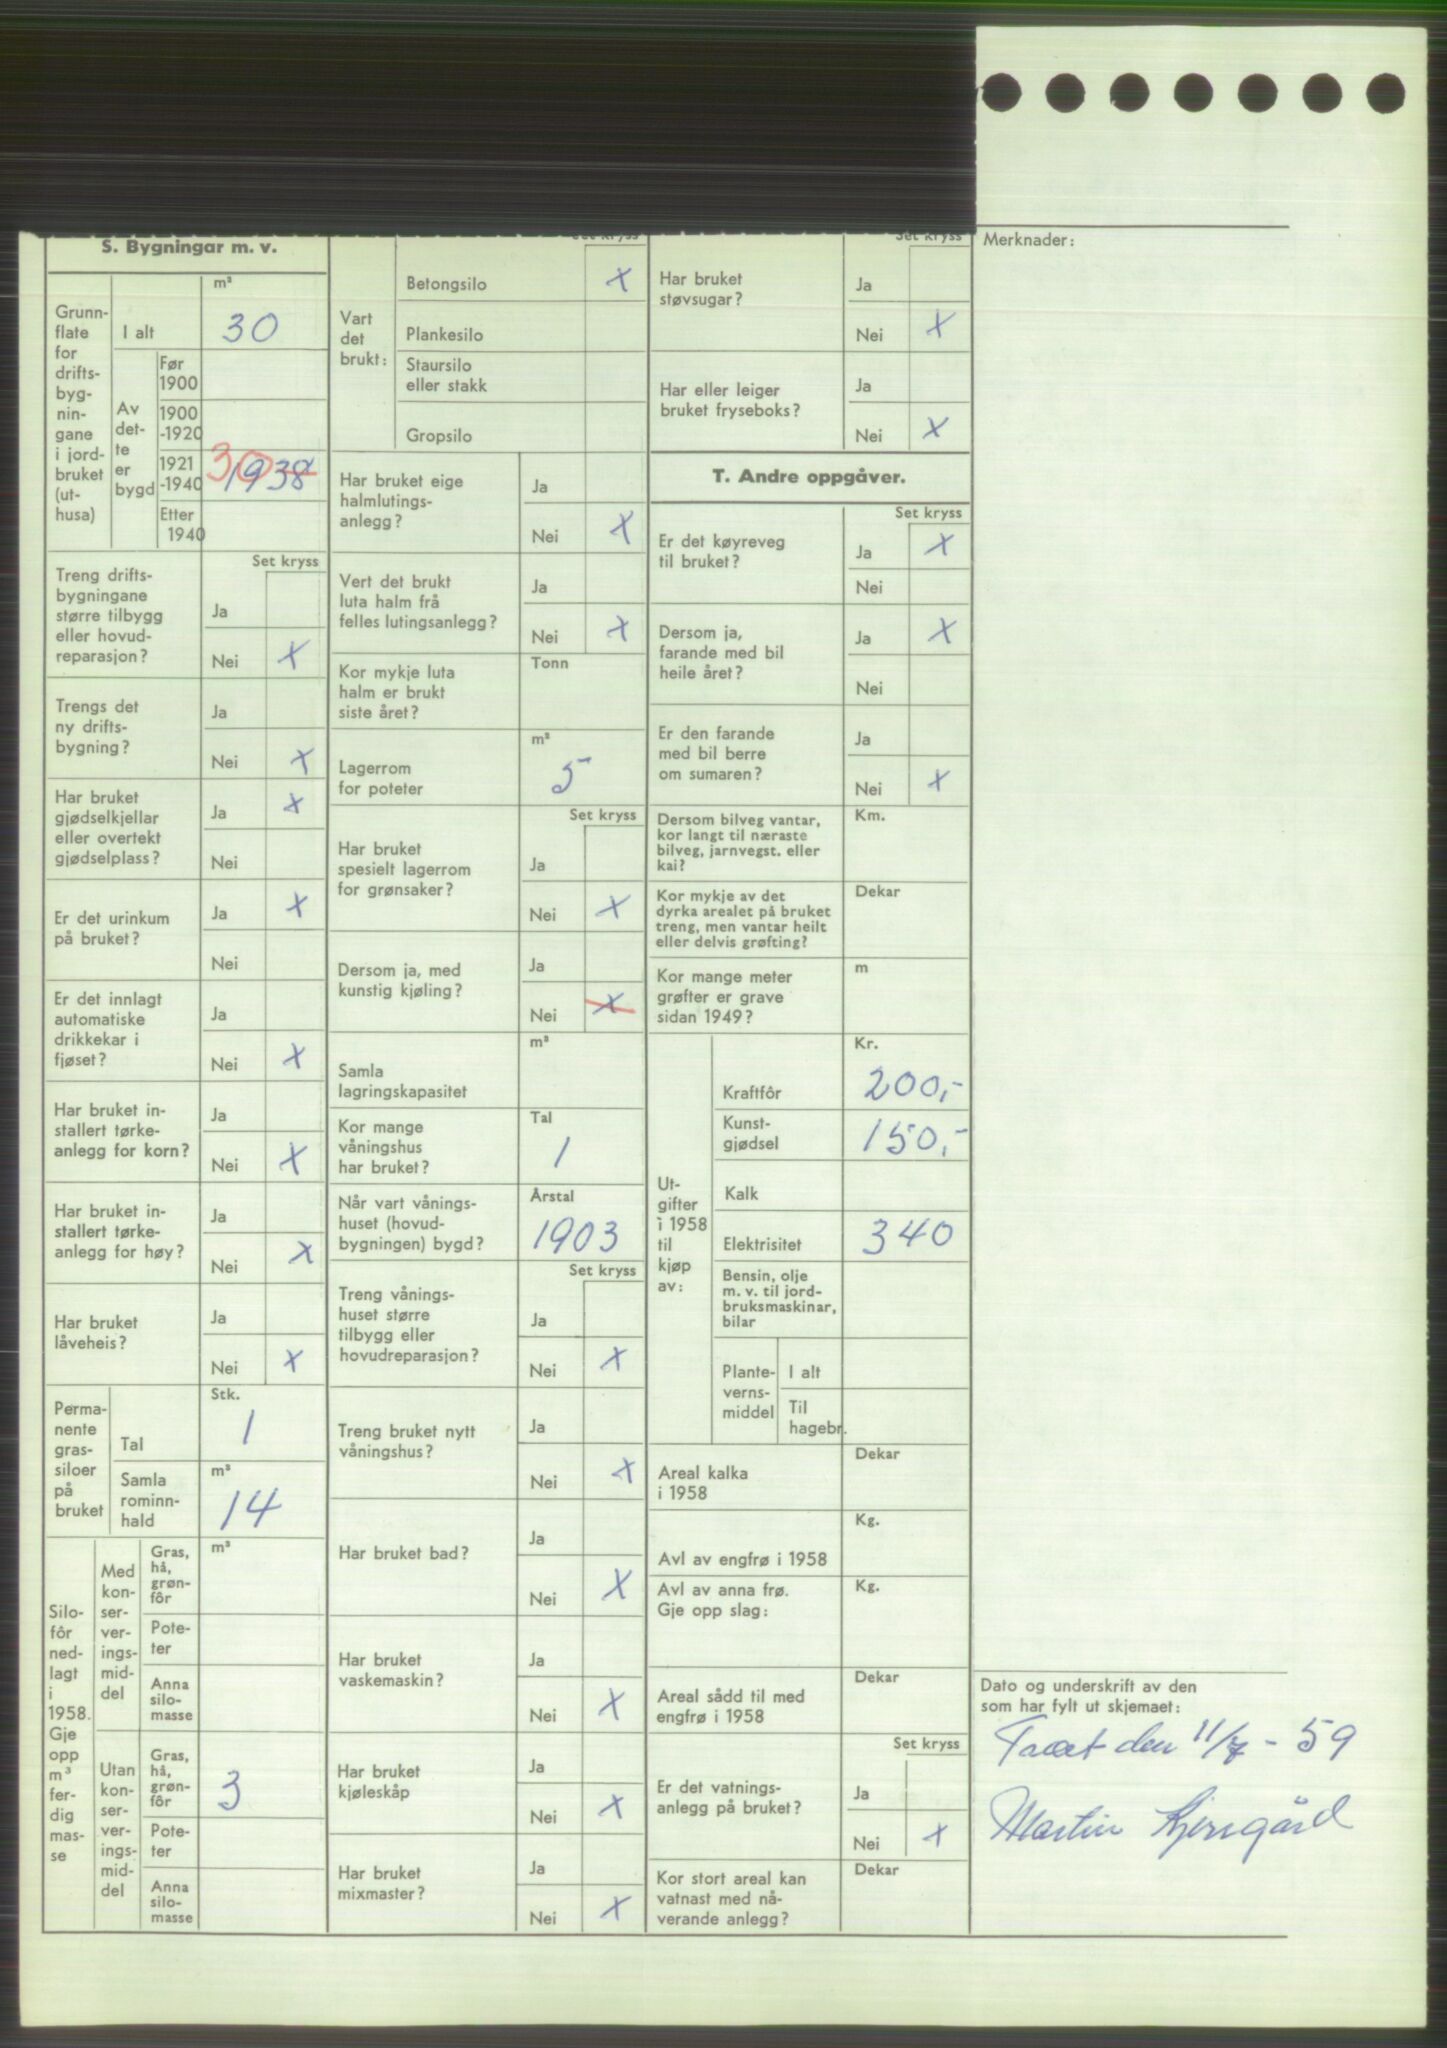 S. Bygningar m. v.
Grunn-
flate
for
drifts-
byg-
nin-
gane
i jord-
bruket
(ut-
husa)
I alt
m²
30
Av
det-
te
er
bygd
Før
1900
1900
-1920
1921
-1940
30
1938
Etter
1940
Set kryss
Treng drifts-
bygningane
større tilbygg
eller hovud-
reparasjon?
Ja
Nei X
Trengs det
ny drifts-
bygning?
Ja
Nei X
Har bruket
gjødselkjellar
eller overtekt
gjødselplass?
Ja X
Nei
Er det urinkum
på bruket?
Ja X
Nei
Er det innlagt
automatiske
drikkekar i
fjøset?
Ja
Nei X
Har bruket in-
stallert tørke-
anlegg for korn?
Ja
Nei X
Har bruket in-
stallert tørke-
anlegg for høy?
Ja
Nei X
Har bruket
låveheis?
Ja
Nei X
Perma-
nente
gras-
siloer
på
bruket
Tal
Stk.
1
Samla
rominn-
hald
m³
14
Silo-
fôr
ned-
lagt
i
1958.
Gje
opp
m³
fer-
dig
mas-
se
Med
kon-
ser-
ver-
ings-
mid-
del
Gras,
hå,
grøn-
fôr
m³
Pote-
ter
Anna
silo-
masse
Utan
kon-
ser-
ver-
ings-
mid-
del
Gras,
hå,
grøn-
fôr
3
Pote-
ter
Anna
silo-
masse
Vart
det
brukt:
Set kryss
Betongsilo X
Plankesilo
Staursilo
eller stakk
Gropsilo
Har bruket eige
halmlutings-
anlegg?
Ja
Nei X
Vert det brukt
luta halm frå
felles lutingsanlegg?
Ja
Nei X
Kor mykje luta
halm er brukt
siste året?
Tonn
Lagerrom
for poteter
m³
5
Set kryss
Har bruket
spesielt lagerrom
for grønsaker?
Ja
Nei X
Dersom ja, med
kunstig kjøling?
Ja
Nei X
Samla
lagringskapasitet
m³
Kor mange
våningshus
har bruket?
Tal
1
Når vart vånings-
huset (hovud-
bygningen) bygd?
Årstal
1903
Set kryss
Treng vånings-
huset større
tilbygg eller
hovudreparasjon?
Ja
Nei X
Treng bruket nytt
våningshus?
Ja
Nei X
Har bruket bad?
Ja
Nei X
Har bruket
vaskemaskin?
Ja
Nei X
Har bruket
kjøleskåp
Ja
Nei X
Har bruket
mixmaster?
Ja
Nei X
Set kryss
Har bruket
støvsugar?
Ja
Nei X
Har eller leiger
bruket fryseboks?
Ja
Nei X
T. Andre oppgåver.
Set kryss
Er det køyreveg
til bruket?
Ja X
Nei
Dersom ja,
farande med bil
heile året?
Ja X
Nei
Er den farande
med bil berre
om sumaren?
Ja
Nei X
Dersom bilveg vantar,
kor langt til næraste
bilveg, jarnvegst. eller
kai?
Km.
Kor mykje av det
dyrka arealet på bruket
treng, men vantar heilt
eller delvis grøfting?
Dekar
Kor mange meter
grøfter er grave
sidan 1949?
m
Ut-
gifter
i 1958
til
kjøp
av:
Kr.
Kraftfôr 200,-
Kunst-
gjødsel 150,-
Kalk
Elektrisitet 340
Bensin, olje
m. v. til jord-
bruksmaskinar,
bilar
Plante-
verns-
middel
I alt
Til
hagebr.
Areal kalka
i 1958
Dekar
Avl av engfrø i 1958
Kg.
Avl av anna frø.
Gje opp slag:
Kg.
Areal sådd til med
engfrø i 1958
Dekar
Set kryss
Er det vatnings-
anlegg på bruket?
Ja
Nei X
Kor stort areal kan
vatnast med nå-
verande anlegg?
Dekar
Merknader:
Dato og underskrift av den
som har fylt ut skjemaet:
den 11/7 - 59
Martin